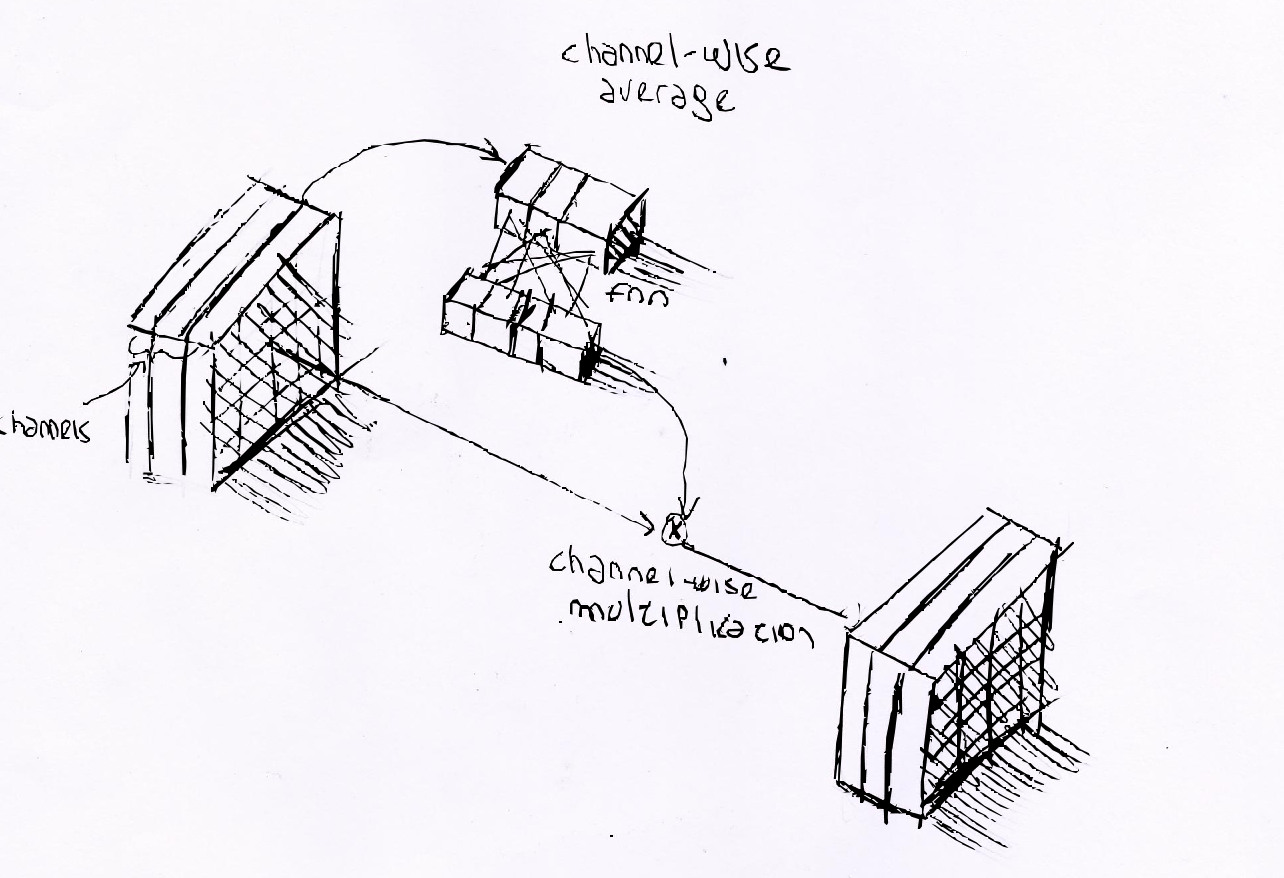 channel-wise
average
fnn
channels
channel-wise
multiplication